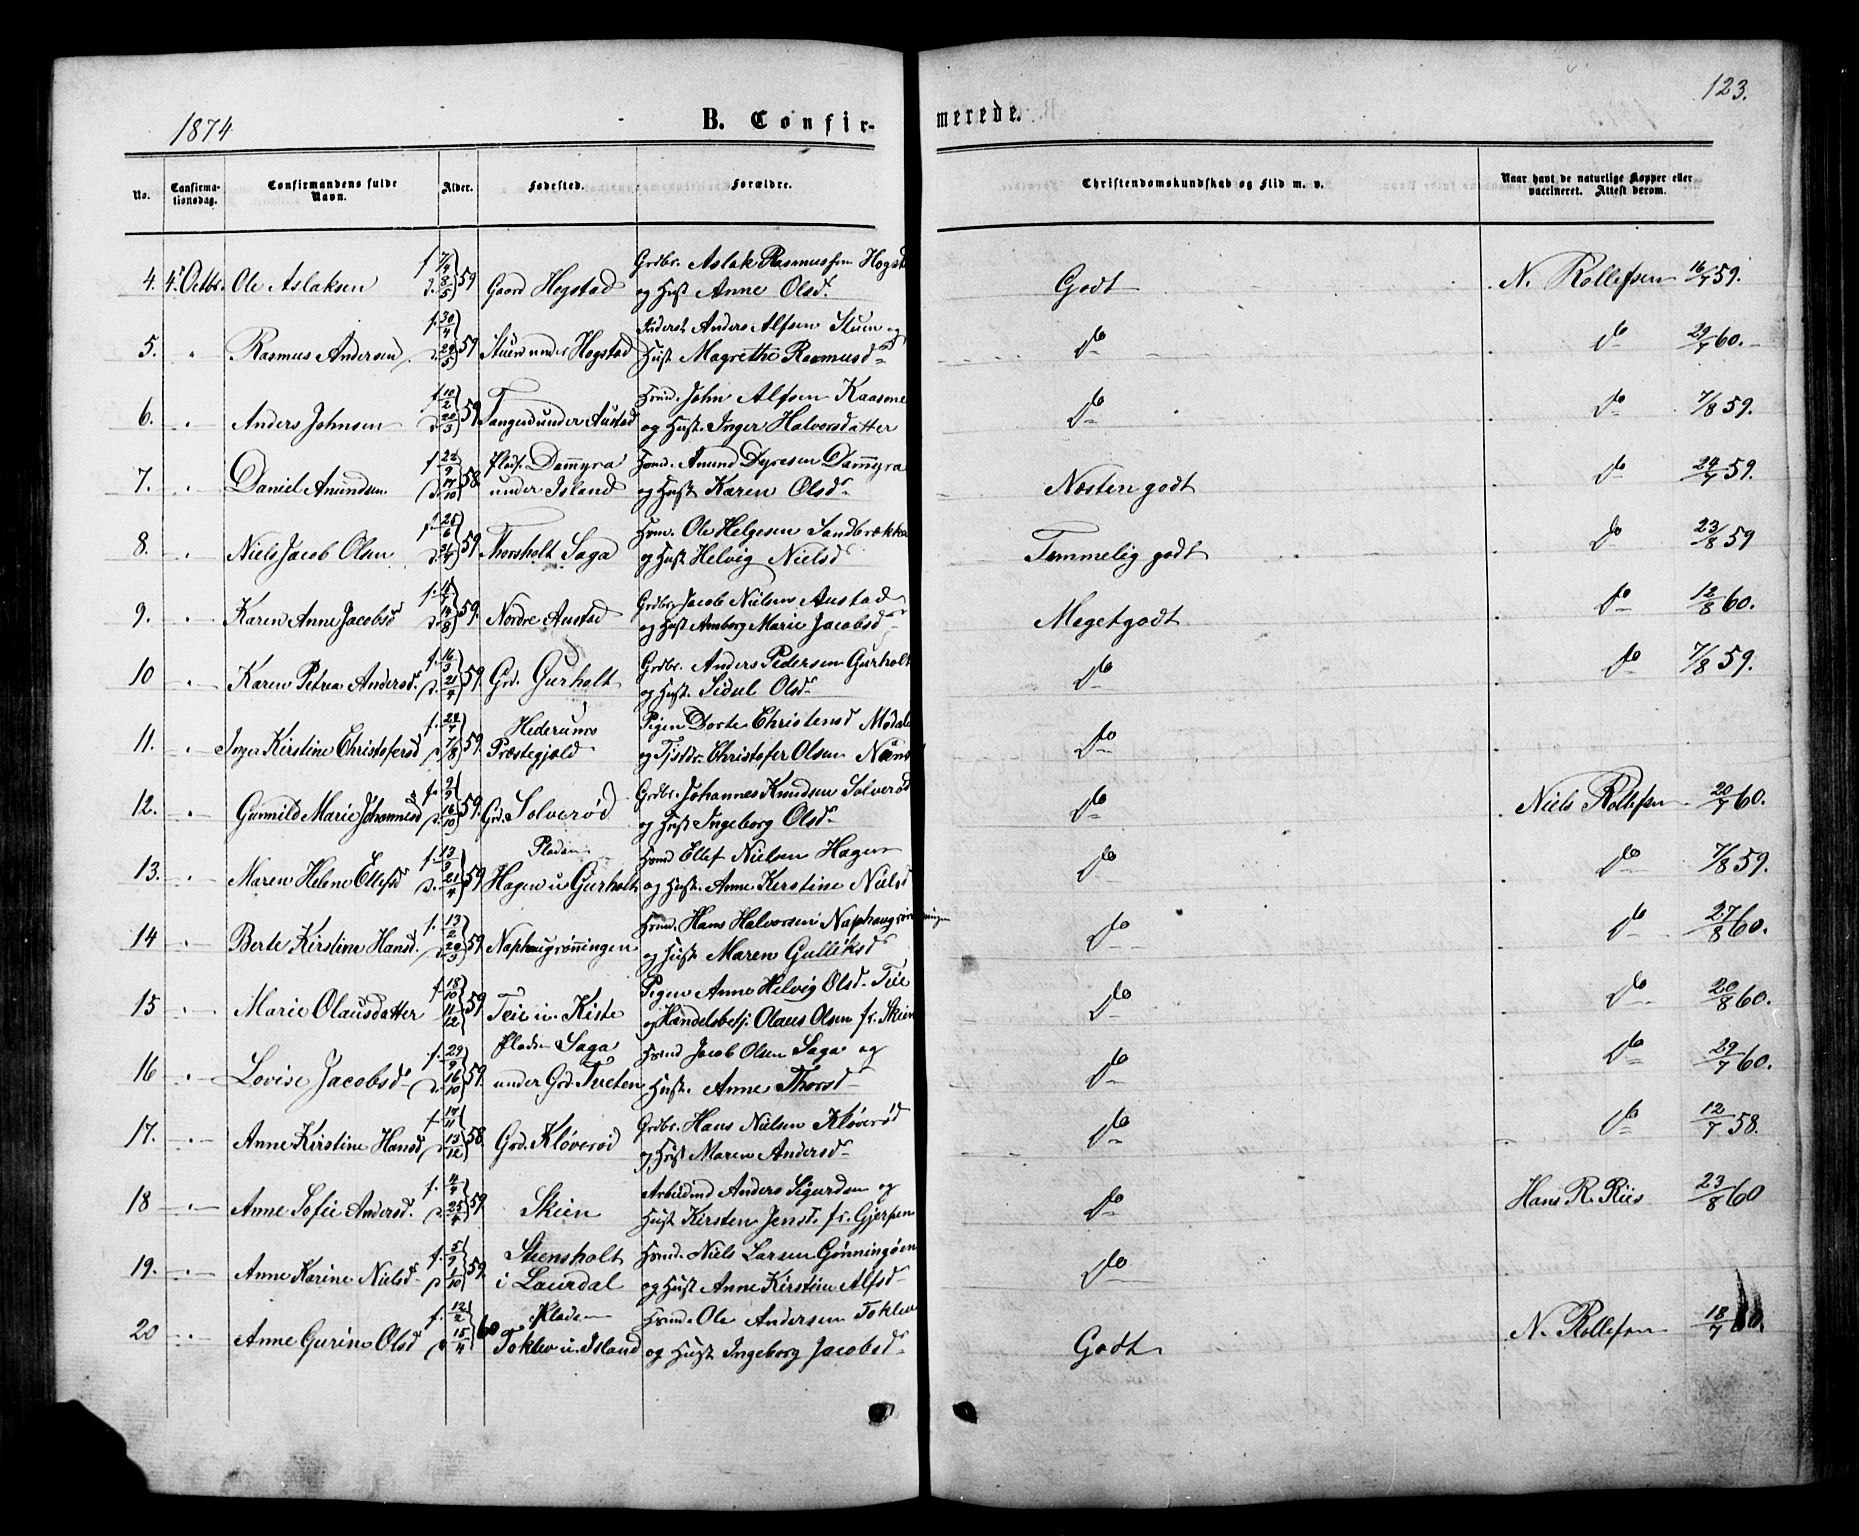 123.
1874
B. Confir-
merede.
No.
Confirma-
tionsdag.
Confirmandens fulde
Navn.
Alder.
Fødested.
Forældre.
Christendomskundskab og Flid m. v.
Naar havt de naturlige Kopper eller
vaccineret. Attest derom.
4. 4. Octbr. Ole Aslaksen f. 7/4 d. 8/5 59 Gaard Hogstad
Grdbr. Aslak Rasmussen Hogstad
og Hust Anne Olsd.
Godt
N. Rollefsen 16/7 59.
5. " Rasmus Andersen f. 30/4 d. 29/5 59 Stuen under Hogstad
Inderst Anders Alfsen Stuen og
Hust. Magrethe Rasmusd.
Do
Do 29/7 60.
6. " Anders Johnsen f. 10/2 d. 20/3 59. Tangen under Austad
Hsmd. John Alfsen Kaasene
og Hust. Inger Halvorsdatter
Do
Do 7/8 59.
7. " Daniel Anundsen f. 22/9 d. 17/10 58. Plads. Dammyra
under Island
Hsmd. Anund Dyresen Dammyra
og Hust Karen Olsd.
Næsten godt
Do 24/7 59.
8. " Niels Jacob Olsen 59 Thorsholt Saga
Hsmd. Ole Helgesen Sandbrække
og Hust Helvig Nielsd
Temmelig godt
Do 23/8 59
9. " Karen Anne Jacobsd 59. Nordre Austad
Grdbr. Jacob Nielsen Austad
og Hust Amborg Marie Jacobsd
Meget godt
Do 12/8 60.
10 " Karen Petrea Andersd. f. 16/3 d. 21/4 59. Grd. Gurholt
Grdbr. Anders Pedersen Gurholt
og Hust. Sidul Olsd
Do
Do 7/8 59.
11. " Inger Kirstine Christofersd d. 7/8 59. Hederums
Præstegjæld
Pigen Dorte Christensd
og Tjstdr. Christofer Olsen
Do
12. " Gunnild Marie Johannesd f. 9/9 d. 16/10 59. Grd. Solverød
Grdbr. Johannes Knudsen Solverød
og Hust Ingeborg Olsd
Do
Niels Rollefsen 20/7 60.
13. " Maren Helene Ellefsd f. 13/3 d. 21/4 59 Pladsen
Hagen u Gurholt
Hsmd Ellef Nielsen Hagen
og Hust. Anne Kerstine Nielsd
Do
Do 7/8 59.
14 " Berte Kirstine Hansd. f. 13/2 d. 20/3 59. Naphaugrønningen
Hsmd. Hans Halvorsen Naphaugrønningen
og Hust Maren Gulliksd
Do
Do 27/8 60.
15 " Marie Olausdatter f. 18/10 11/12 59 Teie u. Kiste
Pigen Anne Helvig Olsd. Teie
og Handelsbetj. Olaus Olsen fr. Skien
Do
Do 20/8 60.
16 " Lovise Jacobsd f. 29/9 d. 16/10 59. Pladsen Saga
under Grd. Tveten
Hsmd Jacob Olsen Saga og
Hust. Anne Thorsd
Do
Do 29/7 60.
17. " Anne Kirstine Hansd f. 17/11 d. 13/12 58. Grd. Kløverød
Grdbr. Hans Nielsen Kløverød
og Hust Maren Andersd
Do
Do 12/7 58.
18 " Anne Sofie Andersd. f. 4/4 d. 25/4 59. Skien
Arbeidmd Anders Sigurdsen og
Hust Kirsten Jensd. fr. Gjerpen
Do
Hans R. Riis 23/8 60
19. " Anne Karine Nielsd f. 5/9 d. 1/10 59. Steensholt
i Laurdal
Hsmd. Niels Larsen Gønningøen
og Hust Anne Kirstine Alfsd
Do
20 " Anne Gurine Olsd f. 12/2 d. 15/4 60 Pladsen
Toklev u. Island
Hsmd. Ole Andersen Toklev
og Hust Ingeborg Jacobsd
Godt
N. Rollefsen 18/7 60.